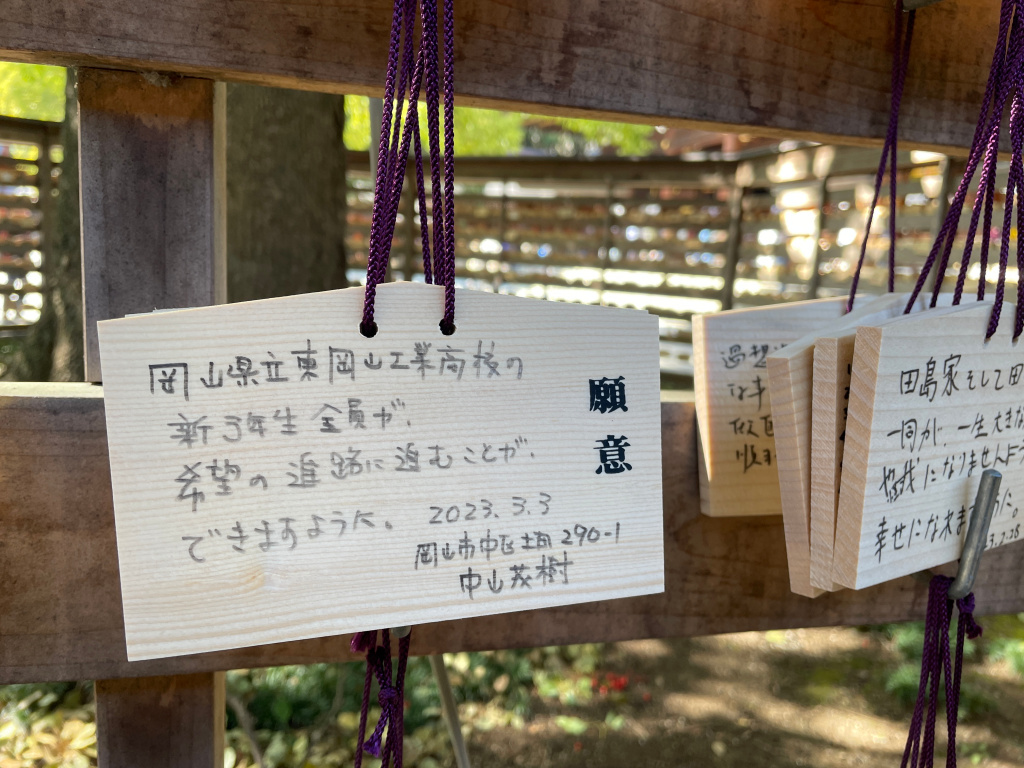 願意
岡山県立東岡山工業高校の
新3年生全員が、
希望の進路に進むことが、
できますように。
2023.3.3
岡山市中区土田290-1
中山茂樹
田島家そして田
一同が、一生大きな
怪我になりませんよう
幸せになれます